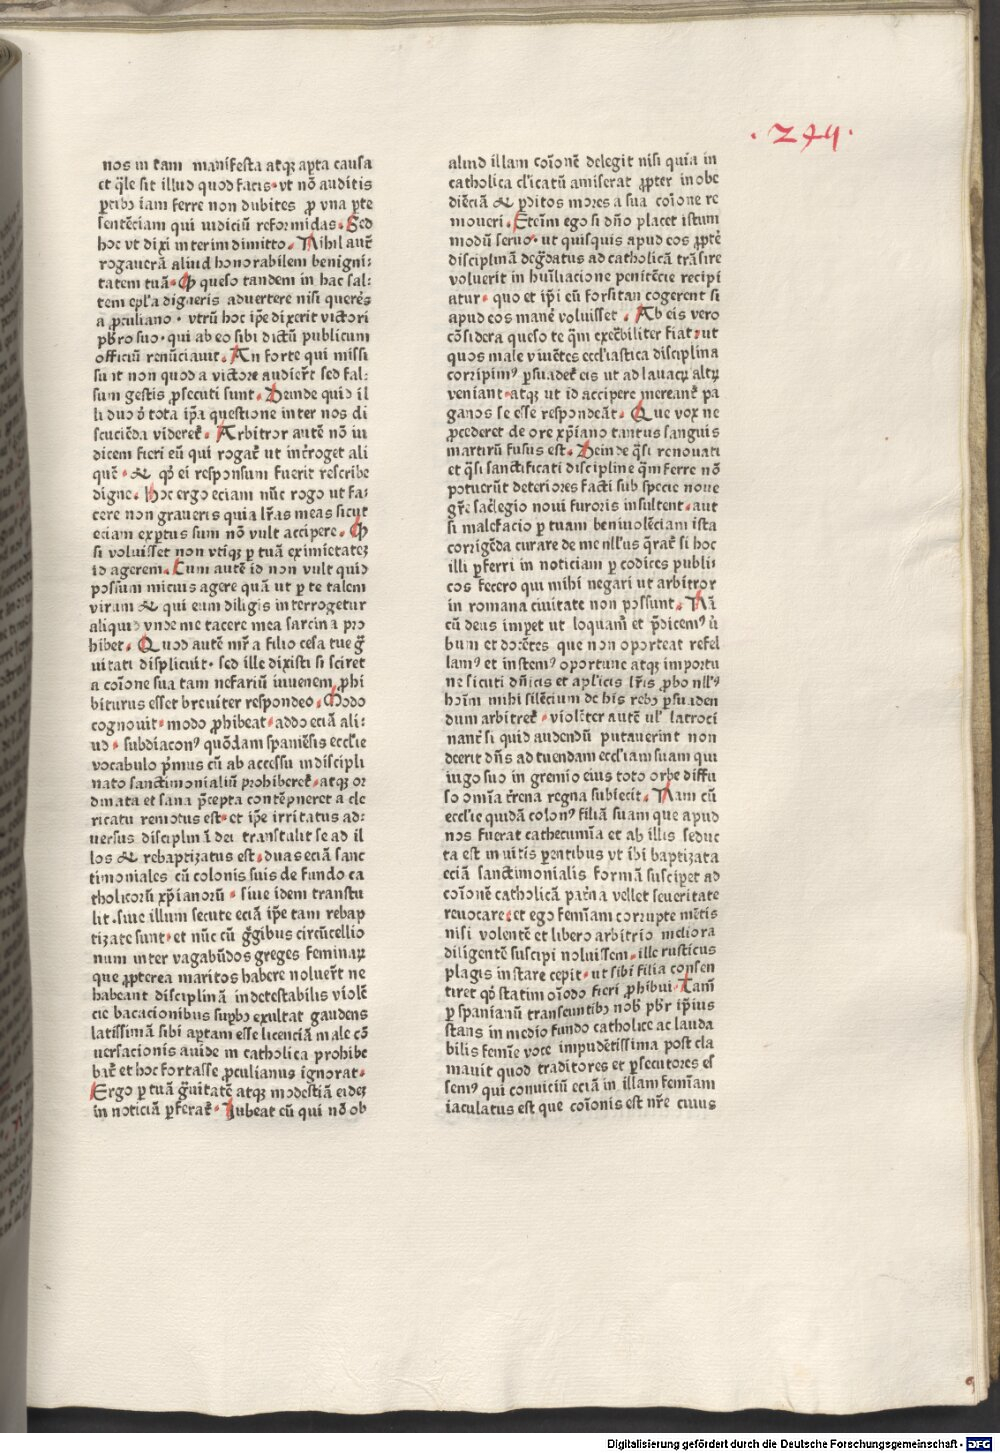 ·279·
nos in tam manifesta atqꝫ apta causa
et q̄le sit illud quod facis·vt nō auditis
ꝑtibꝰ iam ferre non dubites ꝓ vna ꝑte
sentēciam qui iudiciū reformidas. Sed
hoc vt dixi interim dimitto. Nihil aut̄
rogauerā aliud honorabilem benigni⸗
tatem tuā· Qꝫ queso tandem in hac sal⸗
tem epl'a digneris aduertere nisi quere̅s
a ꝓculiano · vtrū hoc ip̄e dixerit victori
pb̄ro suo·qui ab eo sibi dictū publicum
officiū renūciauit. An forte qui missi
sunt non quod a victore audier̄t sed fal⸗
sum gestis ꝓsecuti sunt. Deinde quid il
li duo ꝺ̄ tota ip̄a questione inter nos di
scuciēda videret̄. Arbitror autē nō iu
dicem fieri eū qui rogat̄ ut int̄roget ali
quē · & qd̓ ei responsum fuerit rescribe
digne. Hoc ergo eciam nūc rogo ut fa⸗
cere non graueris quia l'ras meas sicut
eciam exꝑtus sum nō vult accipere. Qd̓
si voluisset non vtiqꝫ ꝑ tuā eximietatez
id agerem. Cum autē id non vult quid
possum micius agere quā ut ꝑ te talem
virum & qui eum diligis interrogetur
aliquid vnde me tacere mea sarcina pro
hibet. Quod autē mr̄a filio cesa tue g̅ꝛ
uitati displicuit· sed ille dixisti si sciret
a cōione sua tam nefariū iuuenem ꝓhi
biturus esset breuiter respondeo. Modo
cognouit·modo ꝓhibeat·addo eciā ali⸗
ud· subdiaconꝰ quōdam spaniēsis eccl'ie
vocabulo p̄mus cū ab accessu indiscipli
nato sanctimonialiū prohiberet̄·atqꝫ or
dinata et sana p̄cepta contēpneret a cle
ricatu remotus est· et ip̄e irritatus ad⸗
uersus disciplinā dei transtulit se ad il
los & rebaptizatus est·duas eciā sanc
timoniales cū colonis suis de fundo ca
tholicorū xp̄ianorū · siue idem transtu
lit·siue illum secute eciā ip̄e tam rebap
tizate sunt·et nūc cū g̅gibus circūcellio
num inter vagabūdos greges feminaꝝ
que ꝓpterea maritos habere noluer̄t ne
habeant disciplinā indetestabilis violē
cie bacacionibus suꝑbꝰ exultat gaudens
latissimā sibi aꝑtam esse licenciā male cō
uersacionis auide in catholica prohibe
bat̄ et hoc fortasse ꝓculianus ignorat·
Ergo ꝑ tuā g̅uitatē atqꝫ modestiā eidez
in noticiā ꝑferat̄· Iubeat cū qui nō ob
aliud illam cōionē delegit nisi quia in
catholica cl'icatū amiserat ꝓpter inobe
diēciā & ꝑditos mores a sua cōione re
moueri. Etc̄im ego si dn̄o placet istum
modū seruo· ut quisquis apud eos ꝓpt̄
disciplinā deg̅datus ad catholicā trāsire
voluerit in hūiliacione penitēcie recipi
atur· quo et ip̄i eū forsitan cogerent si
apud eos manē voluisset . Ab eis vero
cōsidera queso te q̄m exec̄biliter fiat·ut
quos male viuētes eccl'iastica disciplina
corripimꝰ ꝑsuadet̄ eis ut ad lauacꝝ altꝝ
veniant·atqꝫ ut id accipere mereant̄ pa
ganos se esse respondeāt. Que vox ne
ꝓcederet de ore xp̄iano tantus sanguis
martirū fusus est. Deinde q̄si renouati
et q̄si sanctificati discipline q̄m ferre nō
potuerūt deteriores facti sub specie noue
gr̄e sac̄legio noui furoris insultent·aut
si malefacio ꝑ tuam beniuolēciam ista
corrigēda curare de me nll'us q̄rat̄ si hoc
illi ꝑferri in noticiam ꝑ codices publi⸗
cos fecero qui mihi negari ut arbitror
in romana ciuitate non possunt. Nā
cū deus imꝑet ut loquam̄ et p̄dicemꝰ ū
bum et docētes que non oporteat refel
lamꝰ et instemꝰ oportune atqꝫ importu
ne sicuti dn̄icis et apl'icis l'ris ꝓbo nll'ꝰ
hoīm mihi silēcium de his rebꝰ ꝑsuaden
dum arbitret̄·violēter autē ul' latroci
nant̄ si quid audendū putauerint non
deerit dn̄s ad tuendam eccl'iam suam qui
iugo suo in gremio eius toto orbe diffu
so omīa t̄rena regna subiecit. Nam cū
eccl'ie quidā colonꝰ filiā suam que apud
nos fuerat cathecumīa et ab illis seduc
ta est inuitis ꝑentibus vt ibī baptizata
eciā sanctimonialis formā susciꝑet ad
cōionē catholicā pat̄na vellet seueritate
reuocare·et ego femīam corrupte mētis
nisi volentē et libero arbitrio meliora
diligentē suscipi noluissem·ille rusticus
plagis instare cepit·ut sibi filia consen
tiret qd̓ statim oīodo fieri ꝓhibui. Tam̄
ꝑ spanianū transeuntibꝰ nob̄ pb̄r ip̄ius
stans in medio fundo catholice ac lauda
bilis femīe voce impudētissima post cla
mauit quod traditores et ꝑsecutores es̓
semꝰ qui conuiciū eciā in illam femīam
iaculatus est que cōionis est nr̄e cuius
Digitalisierung gefördert durch die Deutsche Forschungsgemeinschaft - DFG